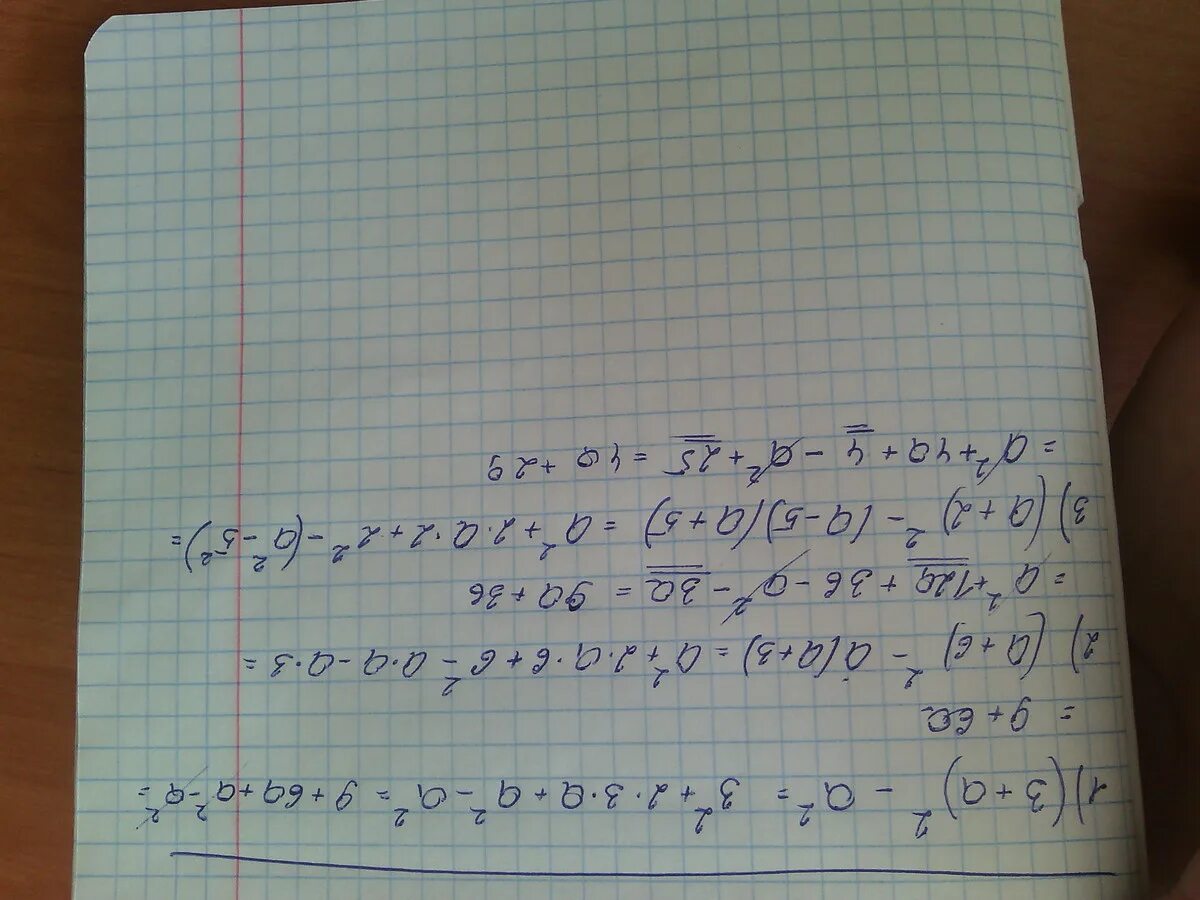 1) (3+a)² - a² = 3² + 2·3·a + a² - a² = 9 + 6a + a² - a² =
= 9 + 6a
2) (a+6)² - a(a+3) = a² + 2·a·6 + 6² - a·a - a·3 =
= a² + 12a + 36 - a² - 3a = 9a + 36
3) (a+2)² - (a-5)(a+5) = a² + 2·a·2 + 2² - (a² - 5²) =
= a² + 4a + 4 - a² + 25 = 4a + 29